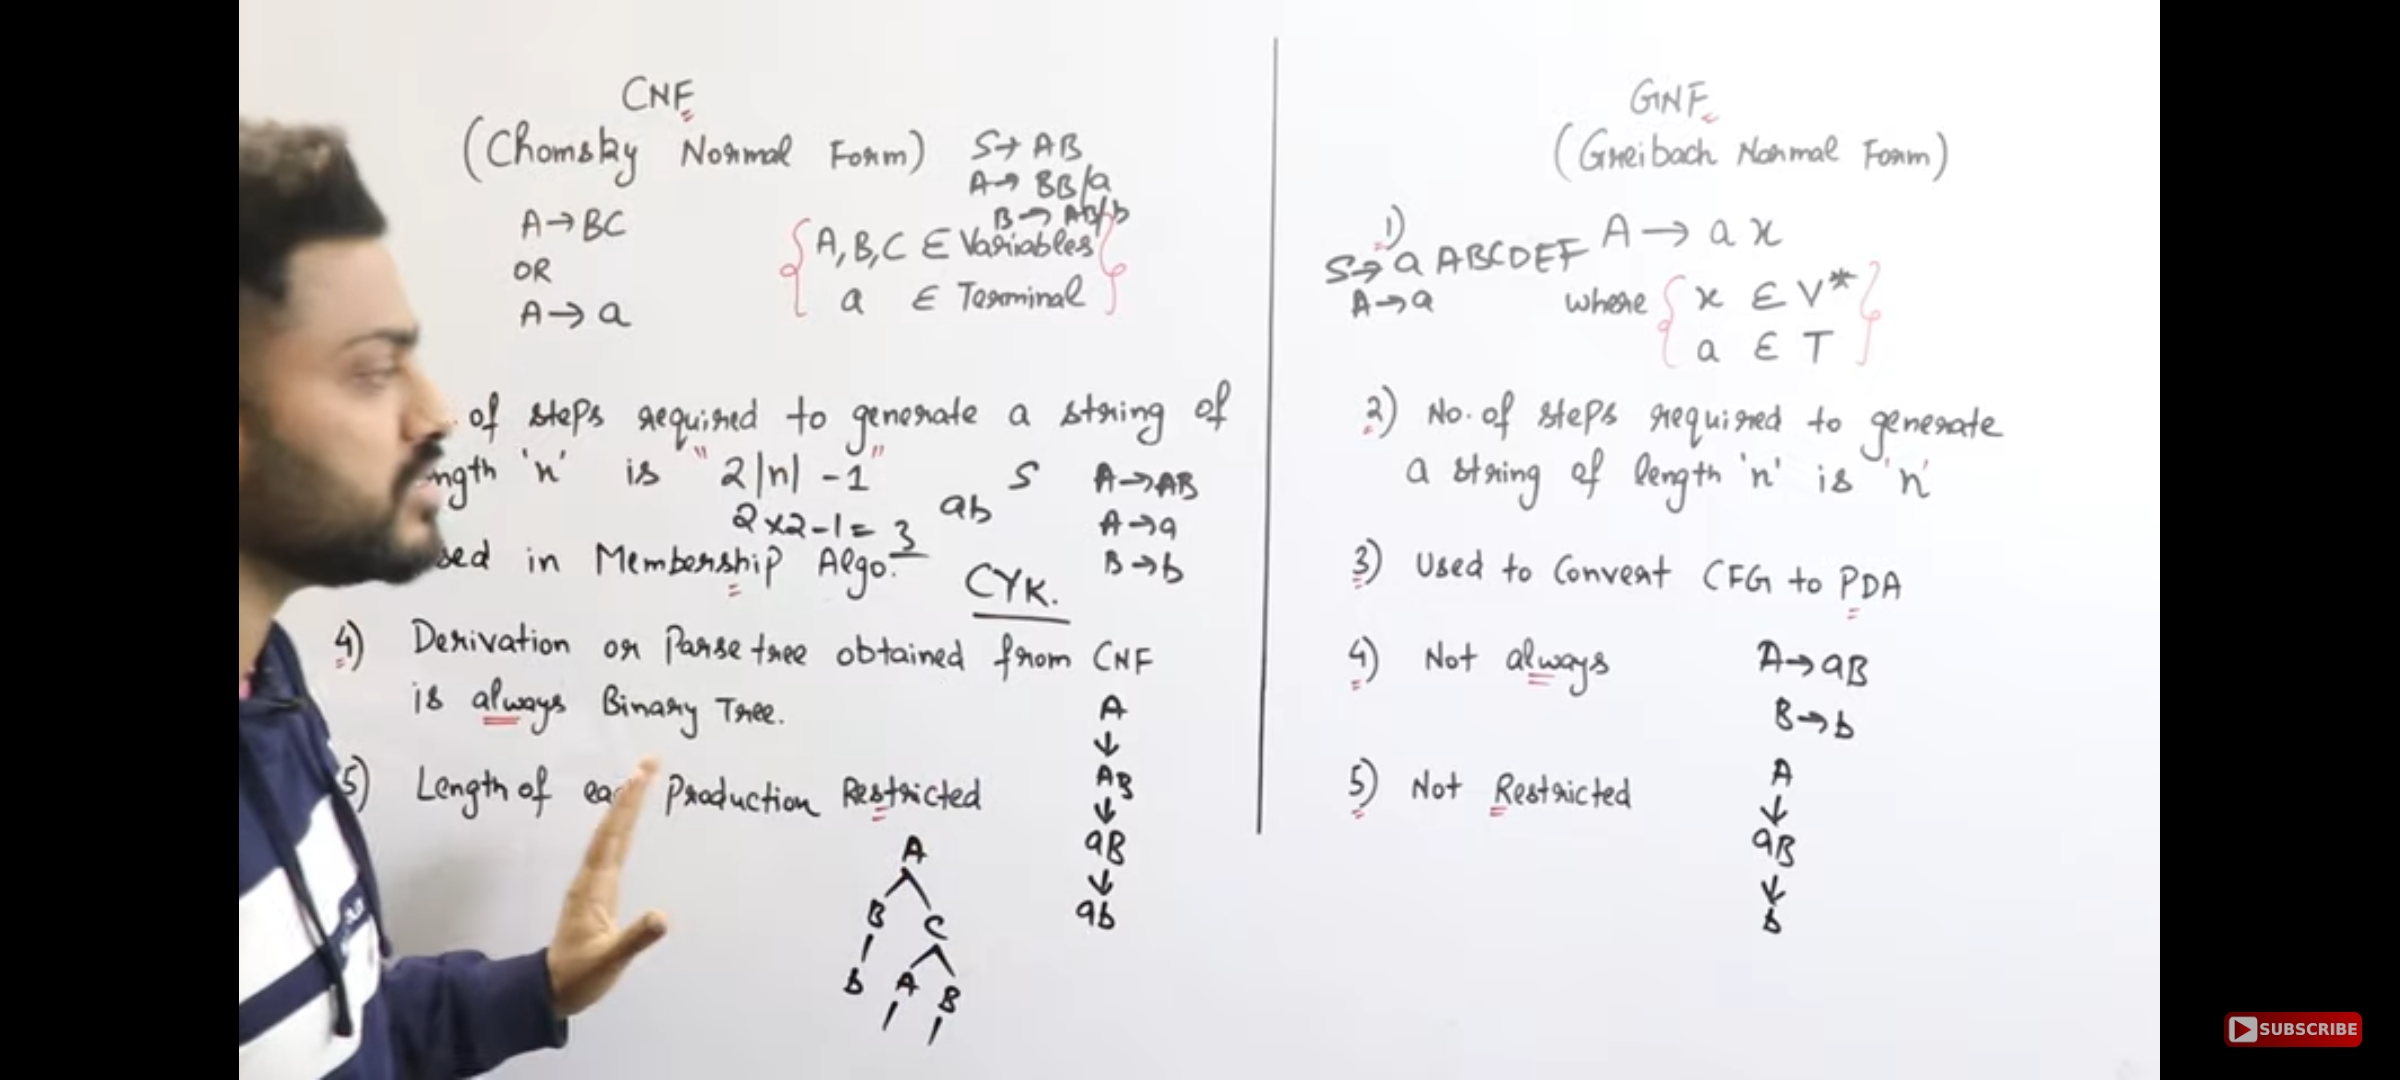 CNF
(Chomsky Normal Form)
S→ AB
A→ BB/a
B→ AB/b
A→BC
OR
A→a
A,B,C ∈ Variables
a ∈ Terminal
of steps required to generate a string of
ngth 'n' is "2|n| -1"
2x2-1= 3
ab
S
A→AB
A→a
B→b
sed in Membership Algo.
CYK.
4) Derivation or Parse tree obtained from CNF
is always Binary Tree.
A
↓
AB
↓
aB
↓
ab
5) Length of Production Restricted
A
B C
b A B
GNF
(Greibach Normal Form)
1) A → a x
S→ a ABCDEF
A→a
where x ∈ V*
a ∈ T
2) No. of steps required to generate
a string of length 'n' is 'n'
3) Used to Convert CFG to PDA
4) Not always
A→aB
B→b
5) Not Restricted
A
↓
aB
↓
b
SUBSCRIBE